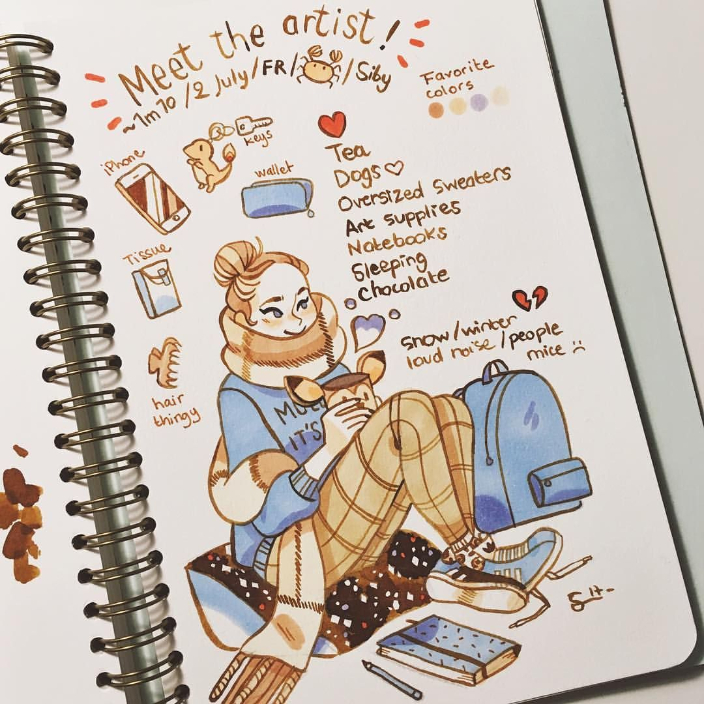 Meet the artist!
~1m70 / 2 July / FR / / Siby
Favorite
colors
iPhone
keys
wallet
Tissue
hair
thingy
Tea
Dogs♡
Oversized Sweaters
Art supplies
Notebooks
Sleeping
chocolate
snow/winter
loud noise/people
mice :(
IT'S